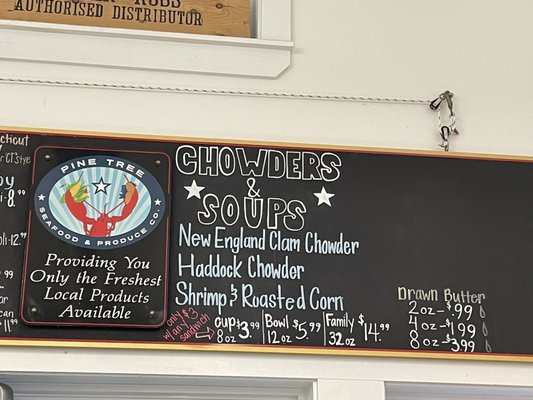 AUTHORISED DISTRIBUTOR
PINE TREE
SEAFOOD & PRODUCE CO.
Providing You
Only the Freshest
Local Products
Available
CHOWDERS
&
SOUPS
New England Clam Chowder
Haddock Chowder
Shrimp & Roasted Corn
only $3
w/any
sandwich
cup 8oz $3.99 | Bowl 12oz $5.99 | Family 32oz $14.99
Drawn Butter
2 oz - $.99
4 oz - $1.99
8 oz - $3.99